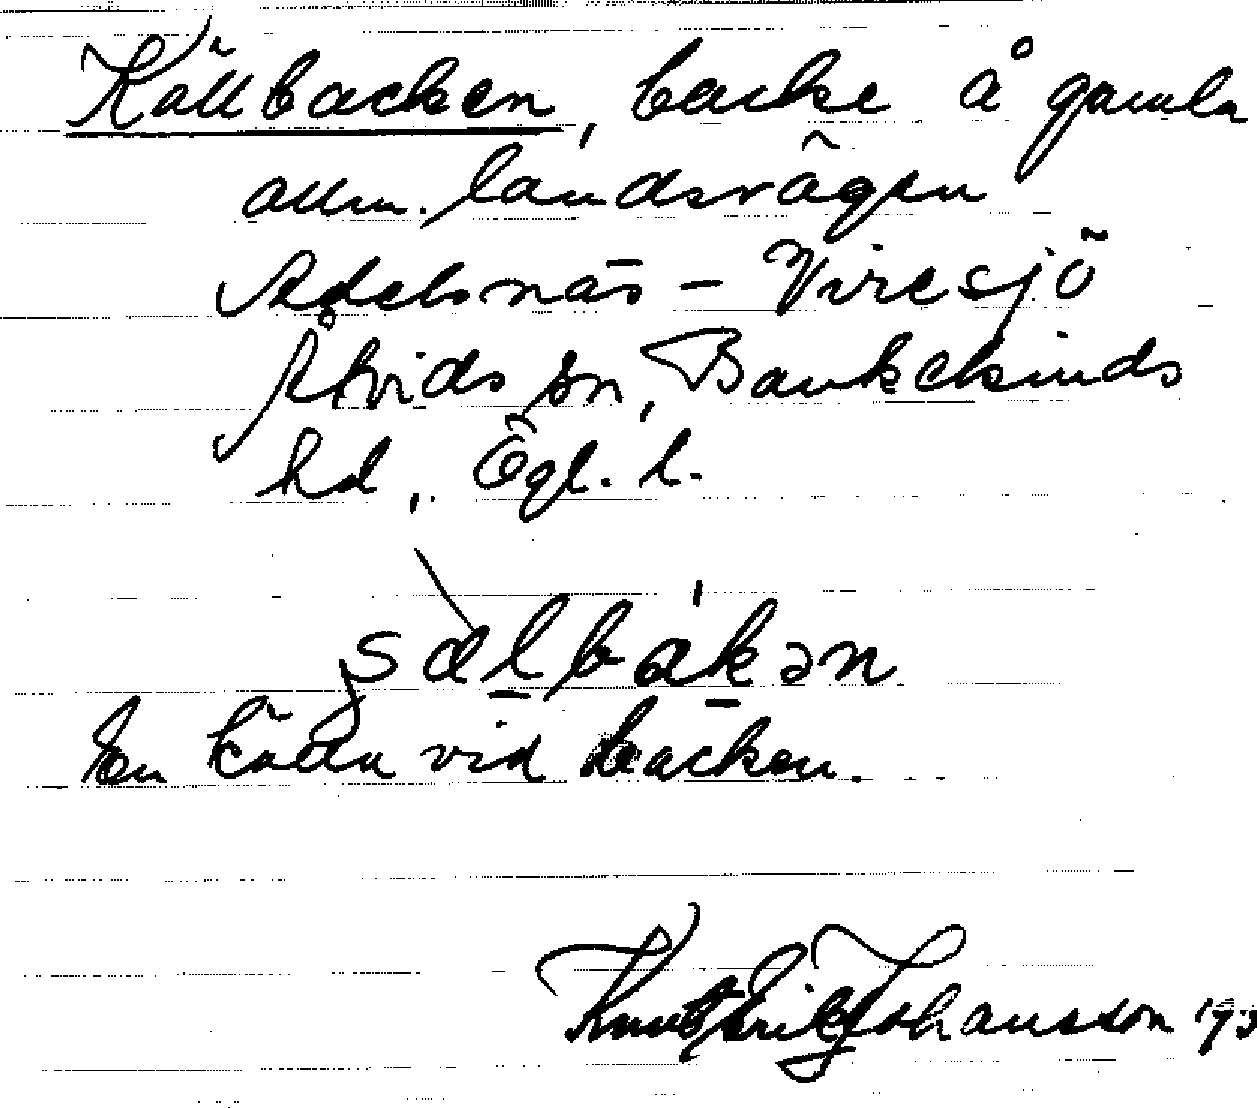 Källbacken, backe å gamla
allm. landsvägen
Adelsnäs - Viresjö
Åtvids sn, Bankekinds
hd, Ögl. l.
sælbakən
En källa vid backen.
Knut Erik Johansson 193